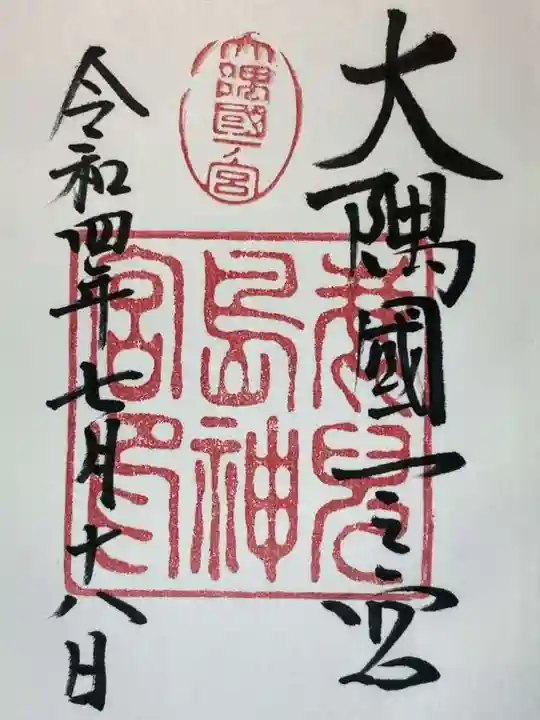 大隅國一之宮
大隅國一ノ宮
鹿兒
島神
宮印
令和四年七月十八日